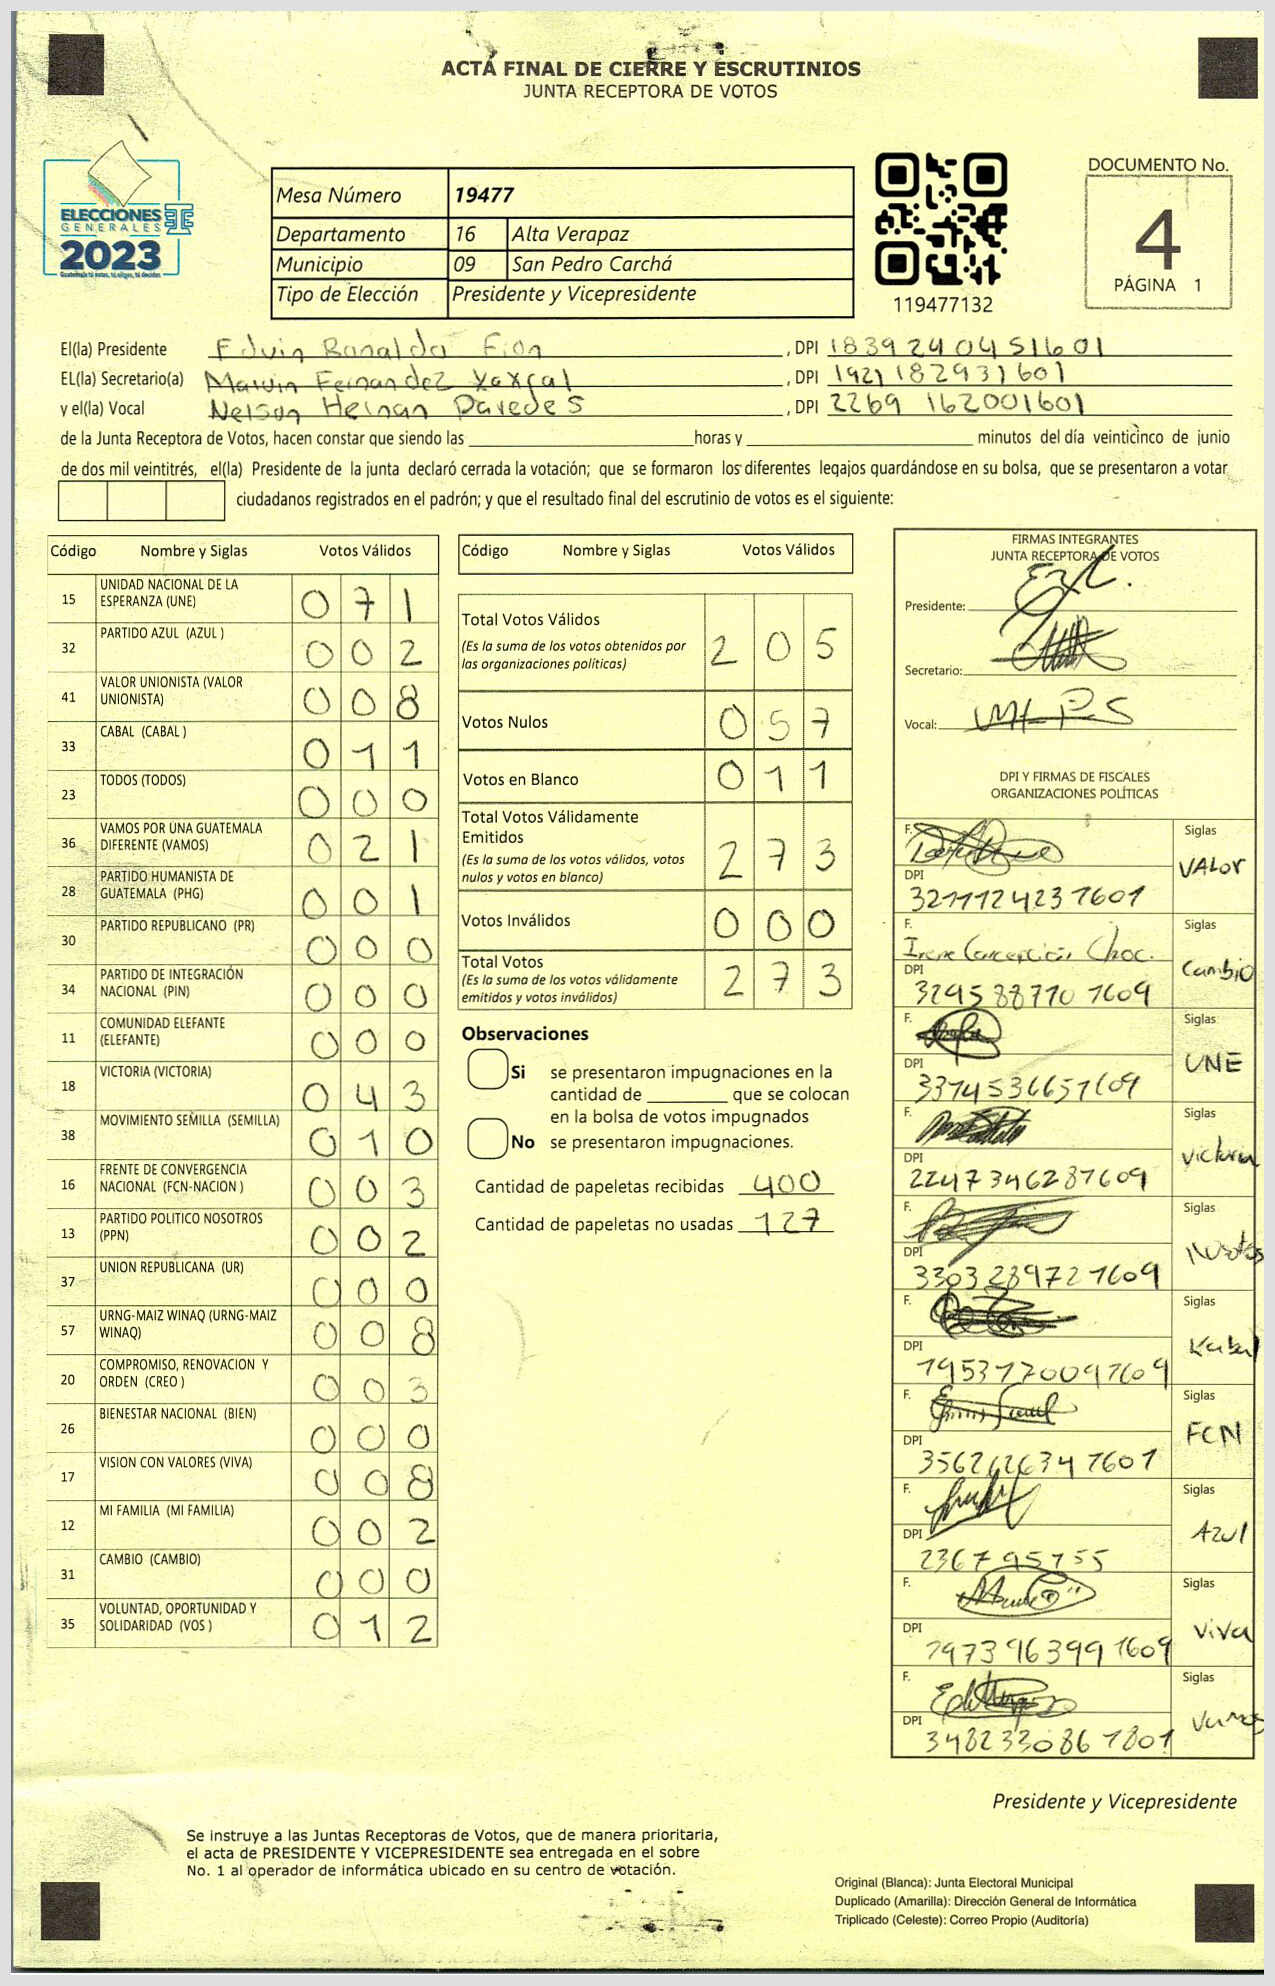 ACTA FINAL DE CIERRE Y ESCRUTINIOS
JUNTA RECEPTORA DE VOTOS
ELECCIONES
GENERALES
2023
Mesa Número 19477
Departamento 16 Alta Verapaz
Municipio 09 San Pedro Carchá
Tipo de Elección Presidente y Vicepresidente
119477132
DOCUMENTO No.
4
PÁGINA 1
El(la) Presidente Edvin Ronaldo Fion, DPI 1839240451601
EL(la) Secretario(a) Marvin Fernandez, DPI 1921182931601
y el(la) Vocal Nelson Hernan Paredes, DPI 2269 162001601
de la Junta Receptora de Votos, hacen constar que siendo las horas y minutos del día veinticinco de junio
de dos mil veintitrés, el(la) Presidente de la junta declaró cerrada la votación; que se formaron los diferentes legajos guardándose en su bolsa, que se presentaron a votar
ciudadanos registrados en el padrón; y que el resultado final del escrutinio de votos es el siguiente:
Código Nombre y Siglas Votos Válidos
15 UNIDAD NACIONAL DE LA ESPERANZA (UNE) 071
32 PARTIDO AZUL (AZUL ) 002
41 VALOR UNIONISTA (VALOR UNIONISTA) 008
33 CABAL (CABAL ) 011
23 TODOS (TODOS) 000
36 VAMOS POR UNA GUATEMALA DIFERENTE (VAMOS) 021
28 PARTIDO HUMANISTA DE GUATEMALA (PHG) 001
30 PARTIDO REPUBLICANO (PR) 000
34 PARTIDO DE INTEGRACIÓN NACIONAL (PIN) 000
11 COMUNIDAD ELEFANTE (ELEFANTE) 000
18 VICTORIA (VICTORIA) 043
38 MOVIMIENTO SEMILLA (SEMILLA) 010
16 FRENTE DE CONVERGENCIA NACIONAL (FCN-NACION ) 003
13 PARTIDO POLITICO NOSOTROS (PPN) 002
37 UNION REPUBLICANA (UR) 000
57 URNG-MAIZ WINAQ (URNG-MAIZ WINAQ) 008
20 COMPROMISO, RENOVACION Y ORDEN (CREO ) 003
26 BIENESTAR NACIONAL (BIEN) 000
17 VISION CON VALORES (VIVA) 008
12 MI FAMILIA (MI FAMILIA) 002
31 CAMBIO (CAMBIO) 000
35 VOLUNTAD, OPORTUNIDAD Y SOLIDARIDAD (VOS ) 012
Código Nombre y Siglas Votos Válidos
Total Votos Válidos 205
(Es la suma de los votos obtenidos por
las organizaciones políticas)
Votos Nulos 057
Votos en Blanco 011
Total Votos Válidamente
Emitidos 273
(Es la suma de los votos válidos, votos
nulos y votos en blanco)
Votos Inválidos 000
Total Votos 273
(Es la suma de los votos válidamente
emitidos y votos inválidos)
Observaciones
Si se presentaron impugnaciones en la
cantidad de que se colocan
en la bolsa de votos impugnados
No se presentaron impugnaciones.
Cantidad de papeletas recibidas 400
Cantidad de papeletas no usadas 127
FIRMAS INTEGRANTES
JUNTA RECEPTORA DE VOTOS
Presidente:
Secretario:
Vocal:
DPI Y FIRMAS DE FISCALES
ORGANIZACIONES POLÍTICAS
F. Siglas
VALOR
DPI
3211124231601
F. Siglas
Irene Concepción Choc.
Cambio
DPI
3295887701609
F. Siglas
UNE
DPI
3374536651609
F. Siglas
Victoria
DPI
2247346281609
F. Siglas
DPI
3303289721609
F. Siglas
DPI
1953170091609
F. Siglas
FCN
DPI
3562626341601
F. Siglas
Azul
DPI
F. Siglas
Viva
DPI
1973963991609
F. Siglas
Vamos
DPI
3482330861801
Presidente y Vicepresidente
Se instruye a las Juntas Receptoras de Votos, que de manera prioritaria,
el acta de PRESIDENTE Y VICEPRESIDENTE sea entregada en el sobre
No. 1 al operador de informática ubicado en su centro de votación.
Original (Blanca): Junta Electoral Municipal
Duplicado (Amarilla): Dirección General de Informática
Triplicado (Celeste): Correo Propio (Auditoría)